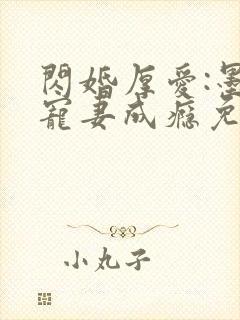 閃婚厚愛:墨
寵妻成癮免
小丸子